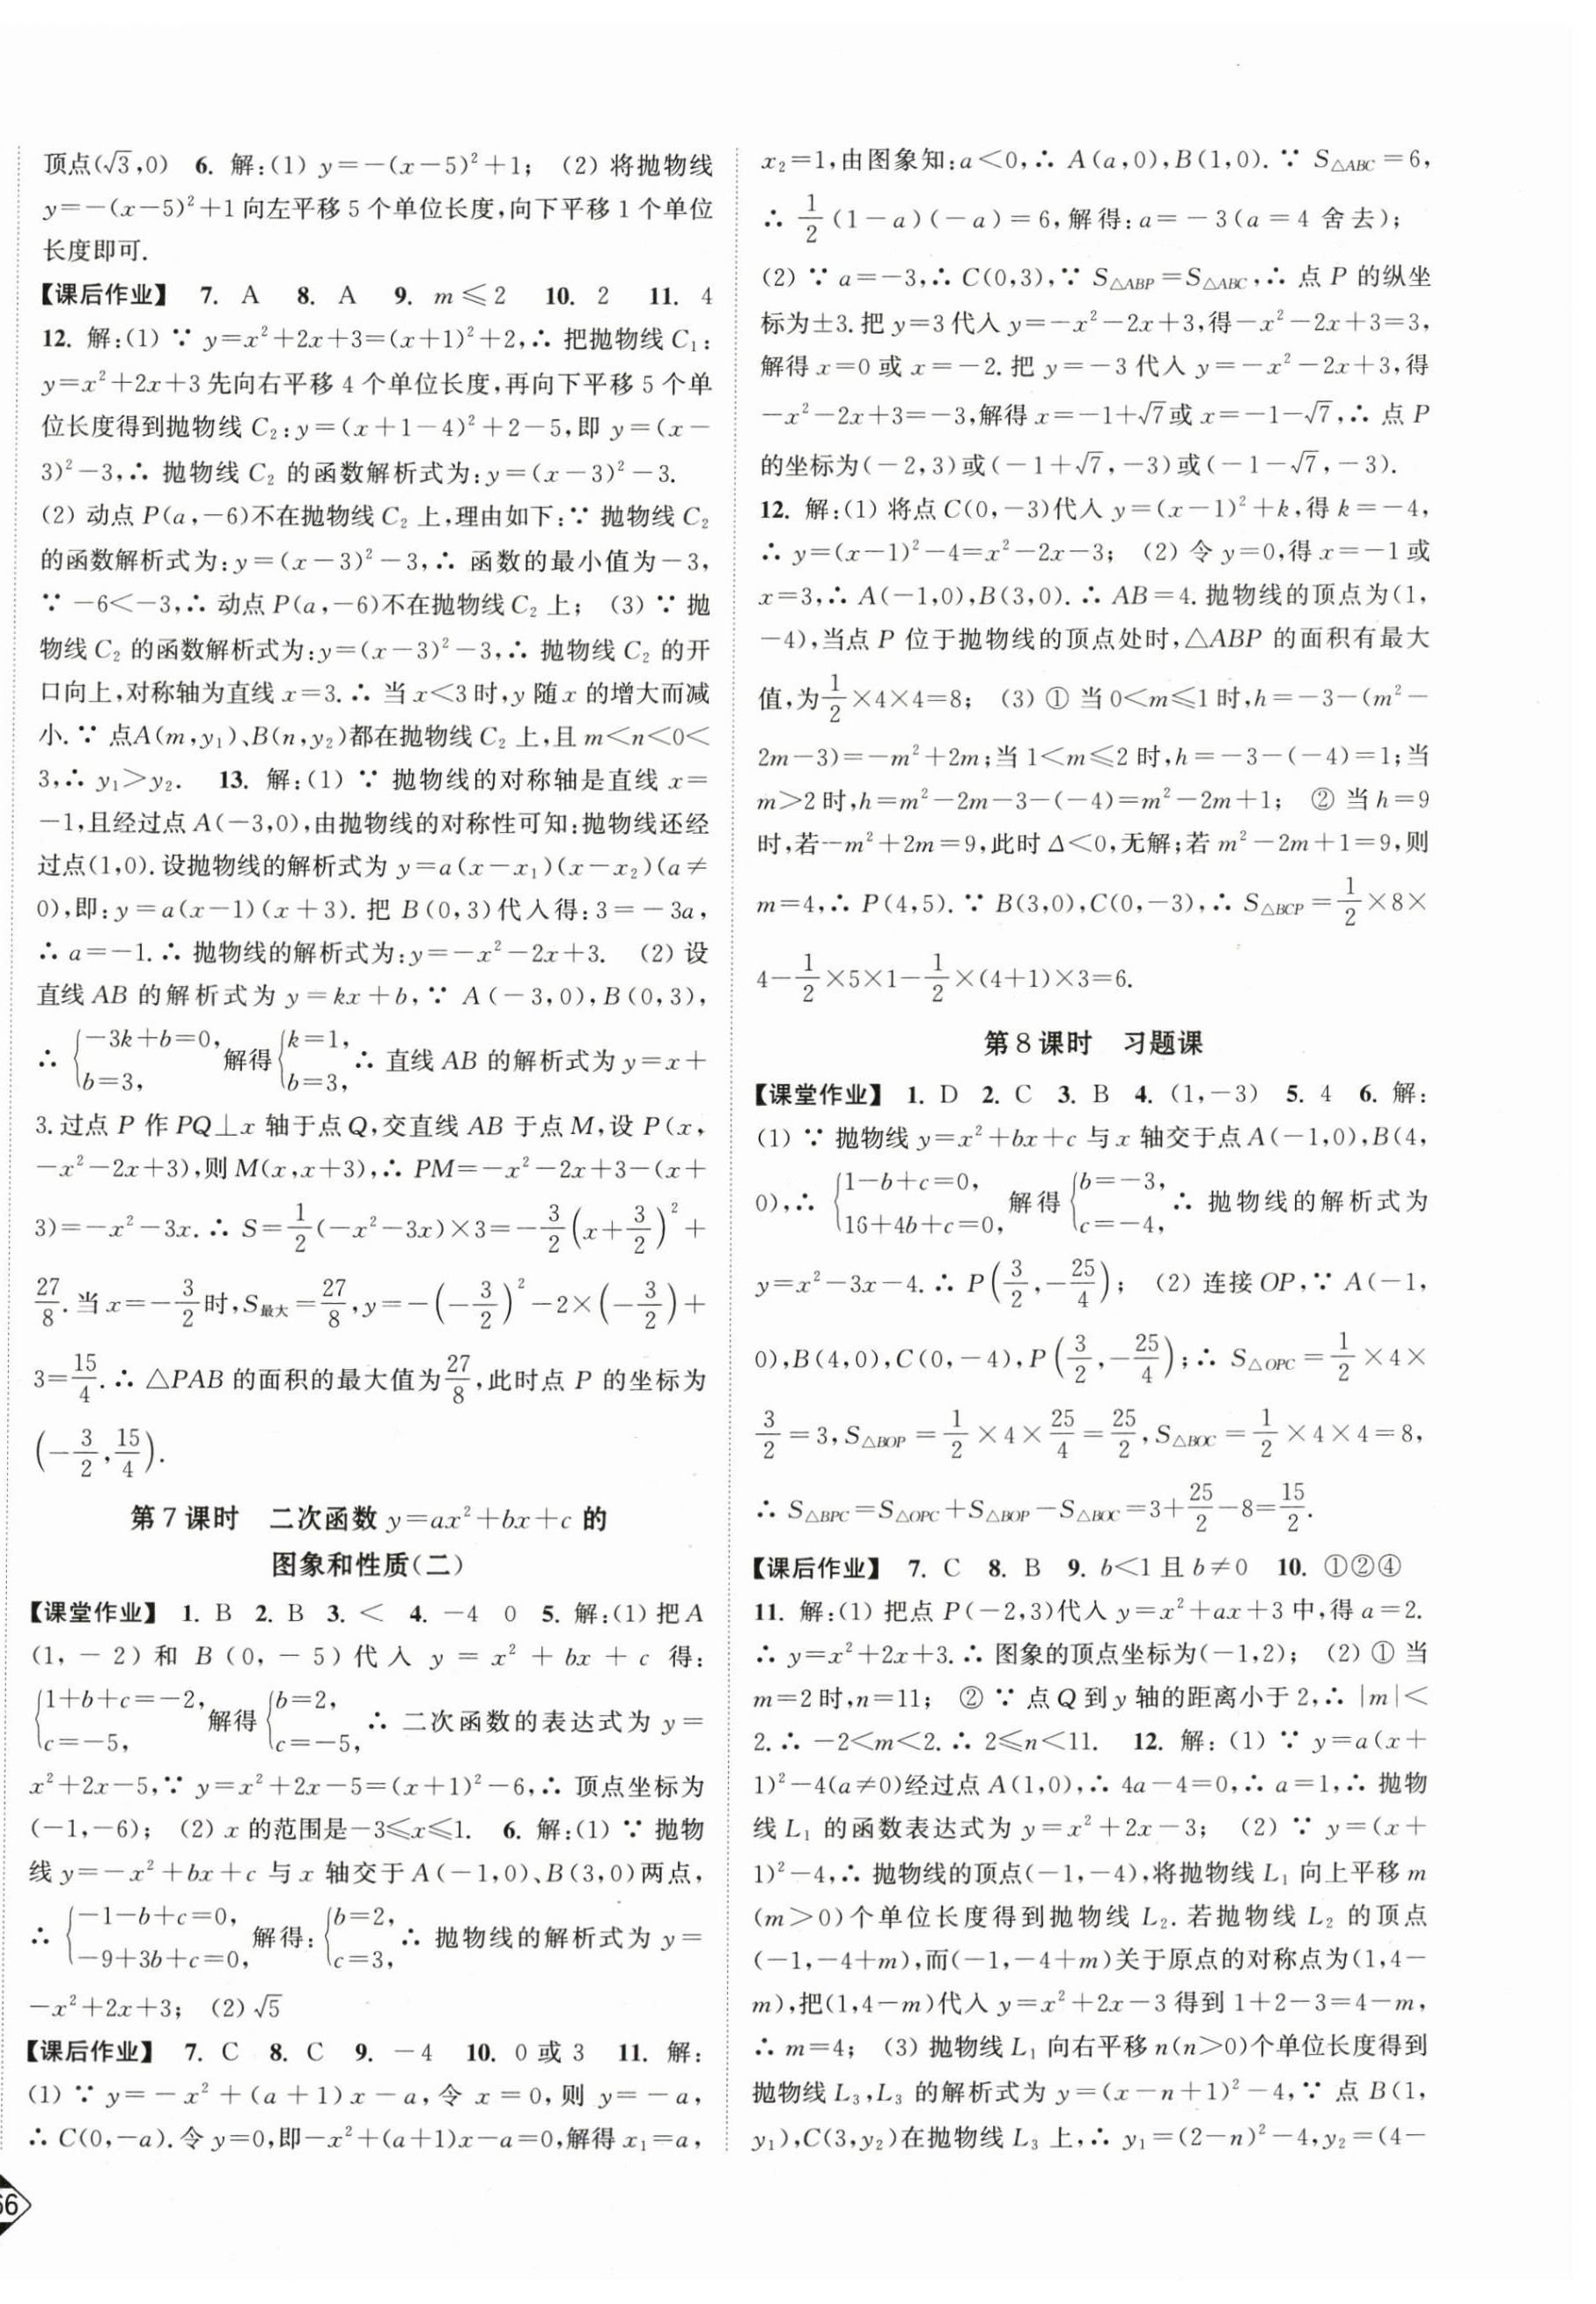 顶点(√3,0)　6. 解:(1) y=-(x-5)²+1;　(2) 将抛物线
y=-(x-5)²+1向左平移5个单位长度,向下平移1个单位
长度即可.
【课后作业】　7. A　8. A　9. m≤2　10. 2　11. 4
12. 解:(1) ∵ y=x²+2x+3=(x+1)²+2,∴ 把抛物线C₁:
y=x²+2x+3先向右平移4个单位长度,再向下平移5个单
位长度得到抛物线C₂:y=(x+1-4)²+2-5,即y=(x-
3)²-3,∴ 抛物线C₂的函数解析式为:y=(x-3)²-3.
(2) 动点P(a,-6)不在抛物线C₂上,理由如下:∵ 抛物线C₂
的函数解析式为:y=(x-3)²-3,∴ 函数的最小值为-3,
∵ -6<-3,∴ 动点P(a,-6)不在抛物线C₂上;　(3) ∵ 抛
物线C₂的函数解析式为:y=(x-3)²-3,∴ 抛物线C₂的开
口向上,对称轴为直线x=3.∴ 当x<3时,y随x的增大而减
小.∵ 点A(m,y₁)、B(n,y₂)都在抛物线C₂上,且m<n<0<
3,∴ y₁>y₂.　13. 解:(1) ∵ 抛物线的对称轴是直线x=
-1,且经过点A(-3,0),由抛物线的对称性可知:抛物线还经
过点(1,0).设抛物线的解析式为y=a(x-x₁)(x-x₂)(a≠
0),即:y=a(x-1)(x+3).把B(0,3)代入得:3=-3a,
∴ a=-1.∴ 抛物线的解析式为:y=-x²-2x+3.　(2) 设
直线AB的解析式为y=kx+b,∵ A(-3,0),B(0,3),
∴ {-3k+b=0, b=3, 解得{k=1, b=3, ∴ 直线AB的解析式为y=x+
3.过点P作PQ⊥x轴于点Q,交直线AB于点M,设P(x,
-x²-2x+3),则M(x,x+3),∴ PM=-x²-2x+3-(x+
3)=-x²-3x.∴ S=1/2(-x²-3x)×3=-3/2(x+3/2)²+
27/8.当x=-3/2时,S最大=27/8,y=-(-3/2)²-2×(-3/2)+
3=15/4.∴ △PAB的面积的最大值为27/8,此时点P的坐标为
(-3/2,15/4).
第7课时　二次函数y=ax²+bx+c的
图象和性质(二)
【课堂作业】 1. B　2. B　3. <　4. -4　0　5. 解:(1) 把A
(1,-2)和B(0,-5)代入y=x²+bx+c得:
{1+b+c=-2, c=-5, 解得{b=2, c=-5, ∴ 二次函数的表达式为y=
x²+2x-5,∵ y=x²+2x-5=(x+1)²-6,∴ 顶点坐标为
(-1,-6);　(2) x的范围是-3≤x≤1.　6. 解:(1) ∵ 抛物
线y=-x²+bx+c与x轴交于A(-1,0)、B(3,0)两点,
∴ {-1-b+c=0, -9+3b+c=0, 解得:{b=2, c=3, ∴ 抛物线的解析式为y=
-x²+2x+3;　(2) √5
【课后作业】　7. C　8. C　9. -4　10. 0或3　11. 解:
(1) ∵ y=-x²+(a+1)x-a,令x=0,则y=-a,
∴ C(0,-a).令y=0,即-x²+(a+1)x-a=0,解得x₁=a,
66
x₂=1,由图象知:a<0,∴ A(a,0),B(1,0).∵ S△ABC=6,
∴ 1/2(1-a)(-a)=6,解得:a=-3(a=4舍去);
(2) ∵ a=-3,∴ C(0,3),∵ S△ABP=S△ABC,∴ 点P的纵坐
标为±3.把y=3代入y=-x²-2x+3,得-x²-2x+3=3,
解得x=0或x=-2.把y=-3代入y=-x²-2x+3,得
-x²-2x+3=-3,解得x=-1+√7或x=-1-√7,∴ 点P
的坐标为(-2,3)或(-1+√7,-3)或(-1-√7,-3).
12. 解:(1) 将点C(0,-3)代入y=(x-1)²+k,得k=-4,
∴ y=(x-1)²-4=x²-2x-3;　(2) 令y=0,得x=-1或
x=3,∴ A(-1,0),B(3,0).∴ AB=4.抛物线的顶点为(1,
-4),当点P位于抛物线的顶点处时,△ABP的面积有最大
值,为1/2×4×4=8;　(3) ① 当0<m≤1时,h=-3-(m²-
2m-3)=-m²+2m;当1<m≤2时,h=-3-(-4)=1;当
m>2时,h=m²-2m-3-(-4)=m²-2m+1;　② 当h=9
时,若-m²+2m=9,此时Δ<0,无解;若m²-2m+1=9,则
m=4,∴ P(4,5).∵ B(3,0),C(0,-3),∴ S△BCP=1/2×8×
4-1/2×5×1-1/2×(4+1)×3=6.
第8课时　习题课
【课堂作业】 1. D　2. C　3. B　4. (1,-3)　5. 4　6. 解:
(1) ∵ 抛物线y=x²+bx+c与x轴交于点A(-1,0),B(4,
0),∴ {1-b+c=0, 16+4b+c=0, 解得{b=-3, c=-4, ∴ 抛物线的解析式为
y=x²-3x-4.∴ P(3/2,-25/4);　(2) 连接OP,∵ A(-1,
0),B(4,0),C(0,-4),P(3/2,-25/4);∴ S△OPC=1/2×4×
3/2=3,S△BOP=1/2×4×25/4=25/2,S△BOC=1/2×4×4=8,
∴ S△BPC=S△OPC+S△BOP-S△BOC=3+25/2-8=15/2.
【课后作业】　7. C　8. B　9. b<1且b≠0　10. ①②④
11. 解:(1) 把点P(-2,3)代入y=x²+ax+3中,得a=2.
∴ y=x²+2x+3.∴ 图象的顶点坐标为(-1,2);　(2) ① 当
m=2时,n=11;　② ∵ 点Q到y轴的距离小于2,∴ |m|<
2.∴ -2<m<2.∴ 2≤n<11.　12. 解:(1) ∵ y=a(x+
1)²-4(a≠0)经过点A(1,0),∴ 4a-4=0,∴ a=1,∴ 抛物
线L₁的函数表达式为y=x²+2x-3;　(2) ∵ y=(x+
1)²-4,∴ 抛物线的顶点(-1,-4),将抛物线L₁向上平移m
(m>0)个单位长度得到抛物线L₂.若抛物线L₂的顶点
(-1,-4+m),而(-1,-4+m)关于原点的对称点为(1,4-
m),把(1,4-m)代入y=x²+2x-3得到1+2-3=4-m,
∴ m=4;　(3) 抛物线L₁向右平移n(n>0)个单位长度得到
抛物线L₃,L₃的解析式为y=(x-n+1)²-4,∵ 点B(1,
y₁),C(3,y₂)在抛物线L₃上,∴ y₁=(2-n)²-4,y₂=(4-